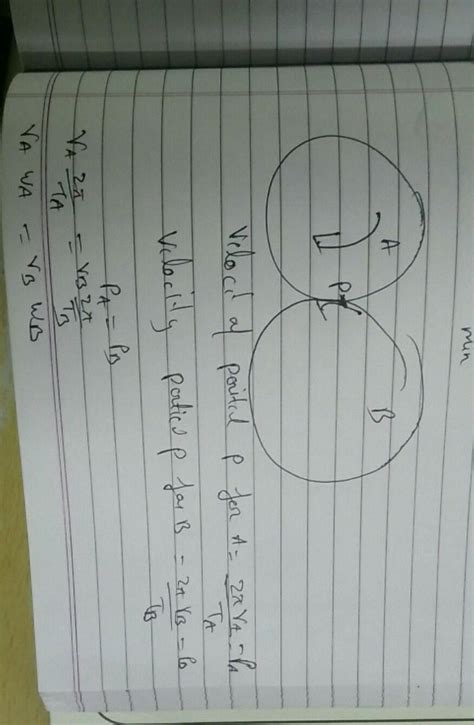 min
A
P
B
Velocit of partical P for A = 2π rA / TA = PA
Velocity particl P for B = 2π rB / TB = PB
PA = PB
rA 2π / TA = rB 2π / TB
rA ωA = rB ωB